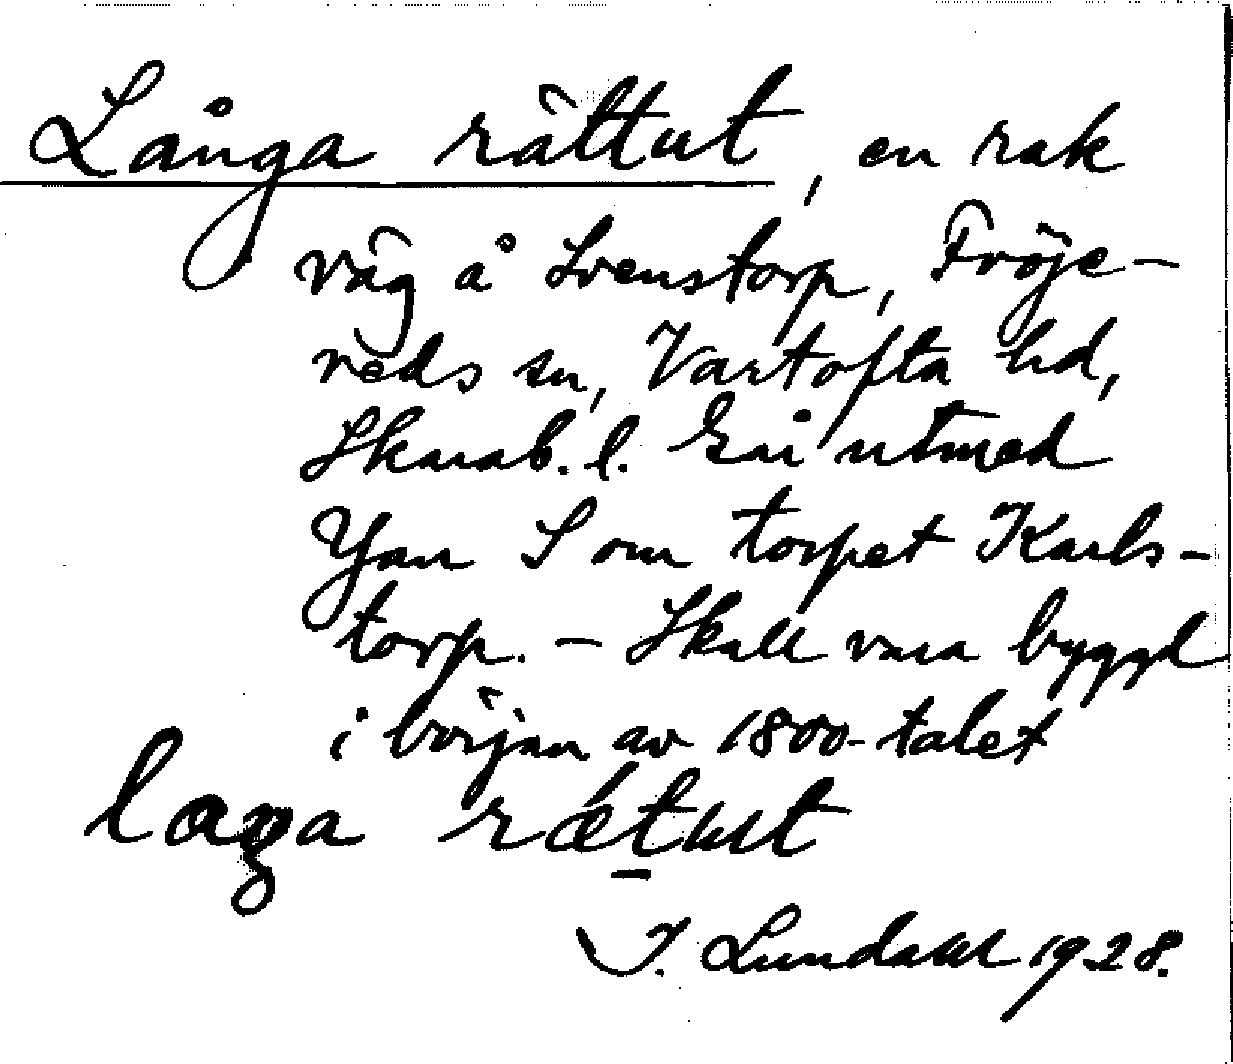 Långa rättut, en rak
väg å Svenstorp, Fröje-
reds sn, Vartofta hd,
Skarab. l. Går utmed
Yan S om torpet Karls-
torp. – Skall vara byggd
i början av 1800-talet
rætut
I. Lundahl 1928.